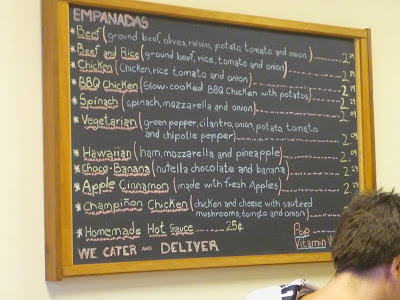 EMPANADAS
* Beef (ground beef, olives, raisins, potato, tomato and onion)
* Beef and Rice (ground beef, rice, tomato and onion)
* Chicken (Chicken, rice tomato and onion)
* BBQ Chicken (Slow-cooked BBQ Chicken with potatos)
* Spinach (spinach, mozzarella and onion)
* Vegetarian (green pepper, cilantro, onion, potato, tomato
and chipotle pepper)
* Hawaiian (ham, mozzarella and pineapple)
* Choco-Banana (nutella chocolate and banana)
* Apple Cinnamon (made with fresh Apples)
* Champiñon Chicken (chicken and cheese with sauteed
mushrooms, tomato and onion)
* Homemade Hot Sauce ...... 25¢
Pop
Vitamin W
WE CATER AND DELIVER